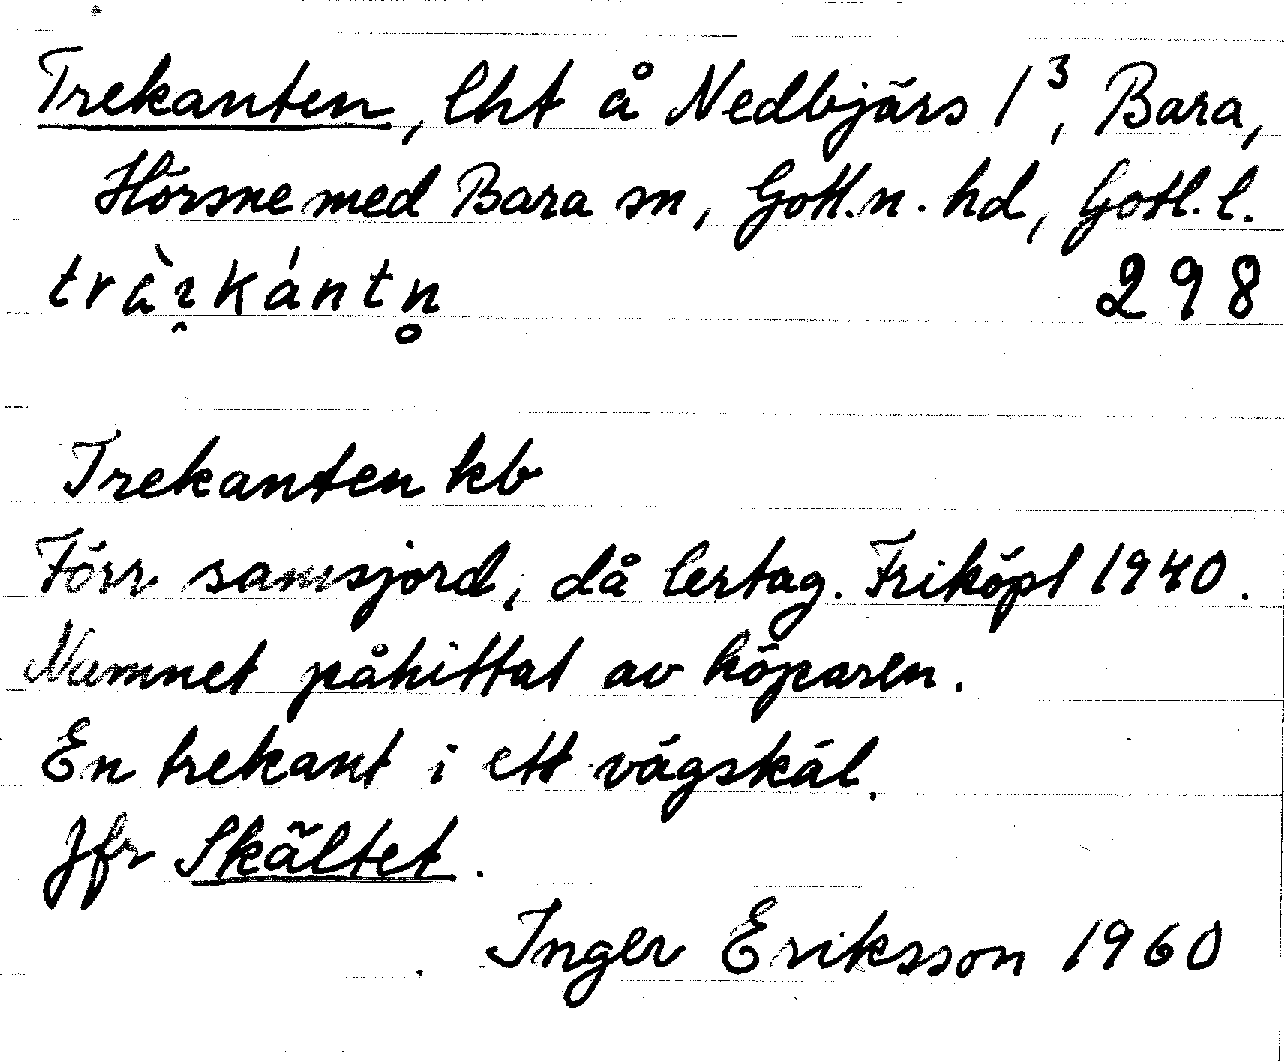 Trekanten, lht å Nedbjärs 1³, Bara,
Hörsne med Bara sn, Gotl.n. hd, Gotl. l.
298
Trekanten kb
Förr samsjord, då lertag. Friköpt 1940.
Namnet påhittat av köparen.
En trekant i ett vägskäl.
Jfr Skältet.
Inger Eriksson 1960